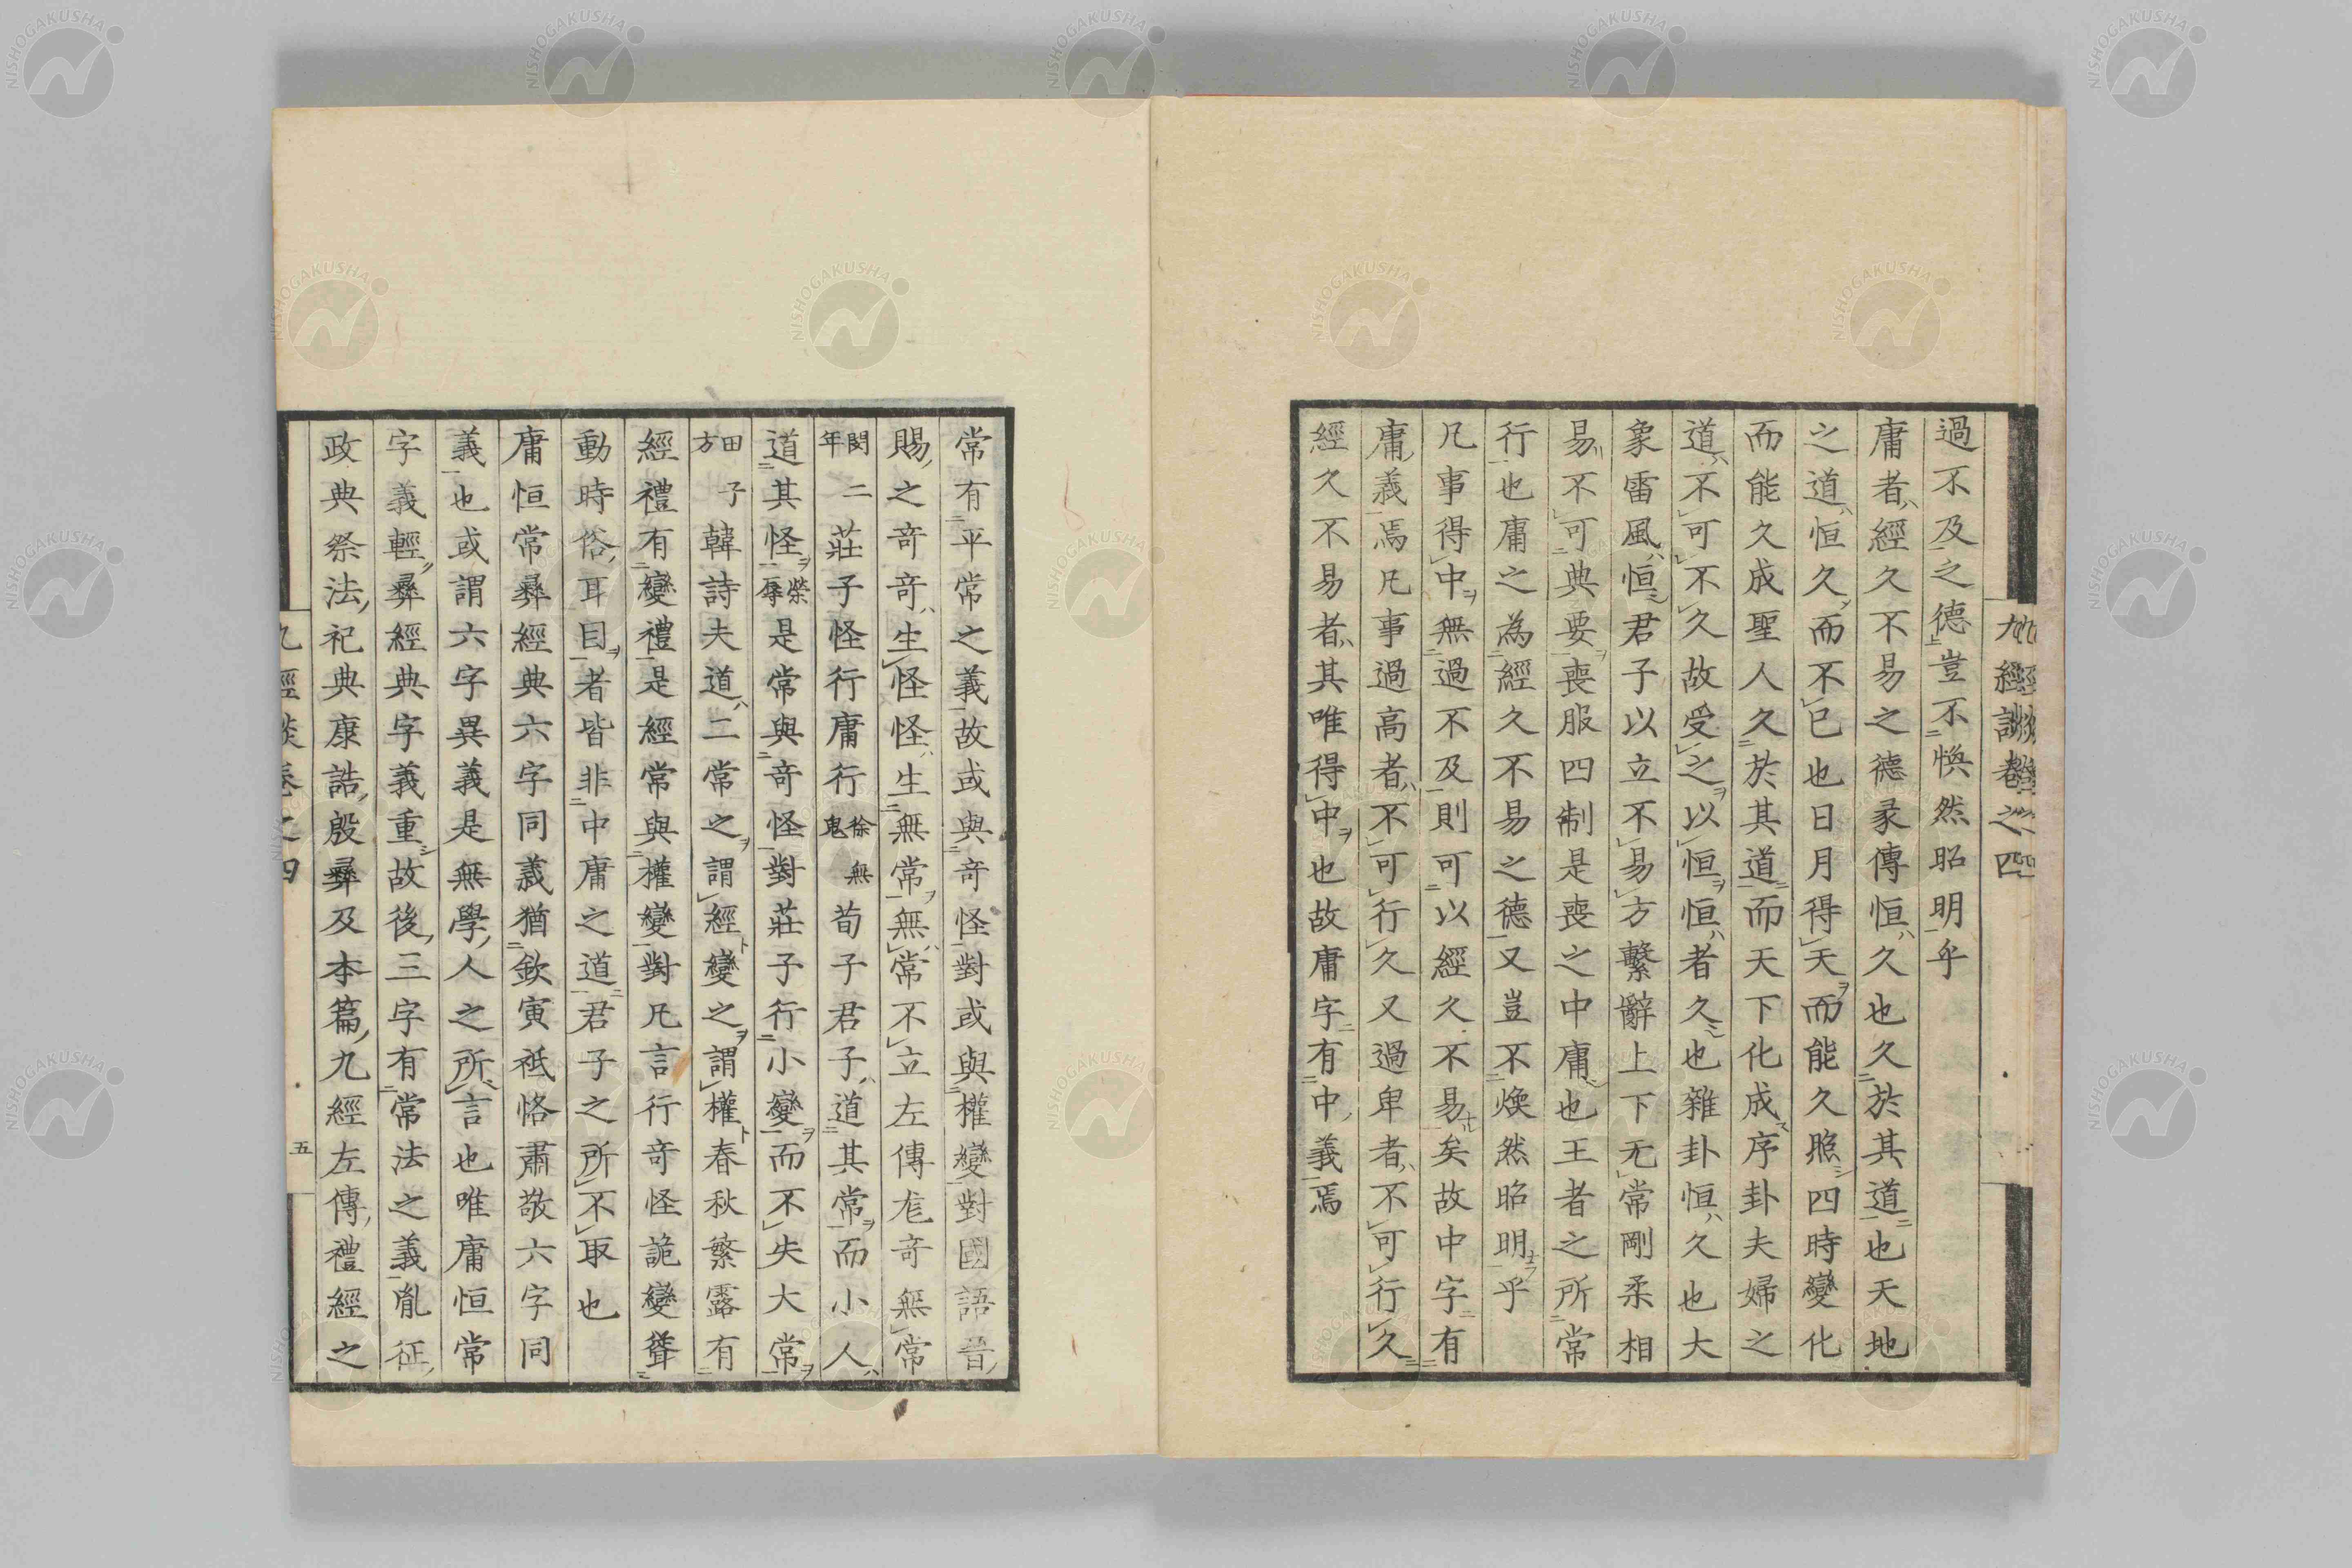 九經談卷之四
過不及之德豈不煥然昭明乎
庸者經久不易之德彖傳恒久也久於其道也天地
之道恒久而不已也日月得天而能久照四時變化
而能久成聖人久於其道而天下化成序卦夫婦之
道不可不久故受之以恒恒者久也雜卦恒久也大
象雷風恒君子以立不易方繫辭上下无常剛柔相
易不可典要喪服四制是喪之中庸也王者之所常
行也庸之為經久不易之德又豈不煥然昭明乎
凡事得中無過不及則可以經久不易矣故中字有
庸義焉凡事過高者不可行久又過卑者不可行久
經久不易者其唯得中也故庸字有中義焉
常有平常之義故或與奇怪對或與權變對國語晉
賜之奇奇生怪怪生無常無常不立左傳尨奇無常
閔二年莊子怪行庸行徐無鬼荀子君子道其常而小人
道其怪榮辱是常與奇怪對莊子行小變而不失大常
田子方韓詩夫道二常之謂經變之謂權春秋繁露有
經禮有變禮是經常與權變對凡言行奇怪詭變聳
動時俗耳目者皆非中庸之道君子之所不取也
庸恒常彝經典六字同義猶欽寅祗恪肅敬六字同
義也或謂六字異義是無學人之所言也唯庸恒常
字義輕彝經典字義重故後三字有常法之義胤征
政典祭法祀典康誥殷彝及本篇九經左傳禮經之
九經談卷之四
五